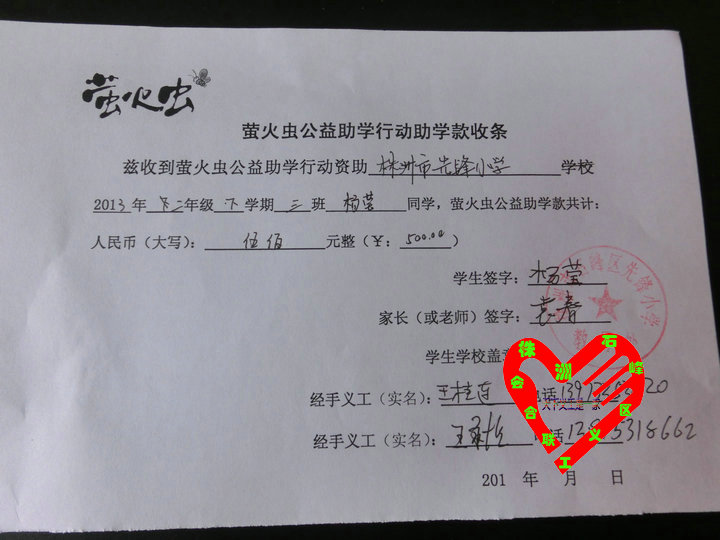 萤火虫
萤火虫公益助学行动助学款收条
兹收到萤火虫公益助学行动资助 株洲市先锋小学 学校
2013 年 二年级 下 学期 三 班 杨莹 同学，萤火虫公益助学款共计：
人民币（大写）： 伍佰 元整（￥： 500.00 ）
学生签字： 杨莹
家长（或老师）签字： 袁春
学生学校盖章
经手义工（实名）： 王桂莲 电话
经手义工（实名）： 王 电话
201 年 月 日
区先锋小学
株洲石峰区义工联合会